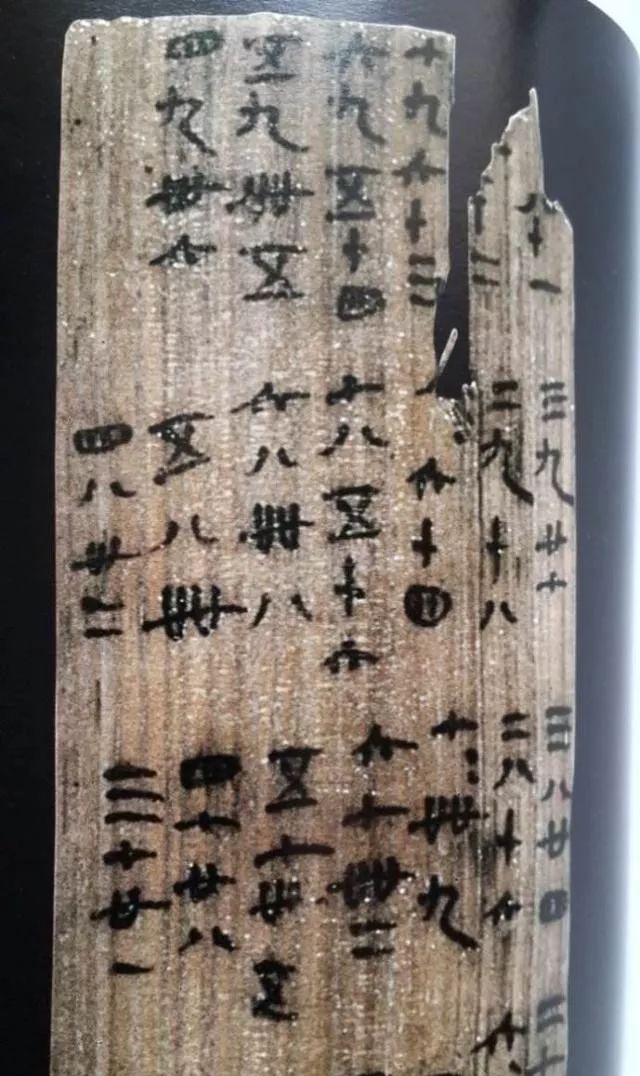 八十一
十二
七九六十三
六九五十四
五九卌五
四九卅六
三九廿七
二九十八
六十四
七八五十六
六八卌八
五八卌
四八卅二
三八廿四
二八十六
七七卌九
六七卌二
五七卅五
四七廿八
三七廿一
二七
六